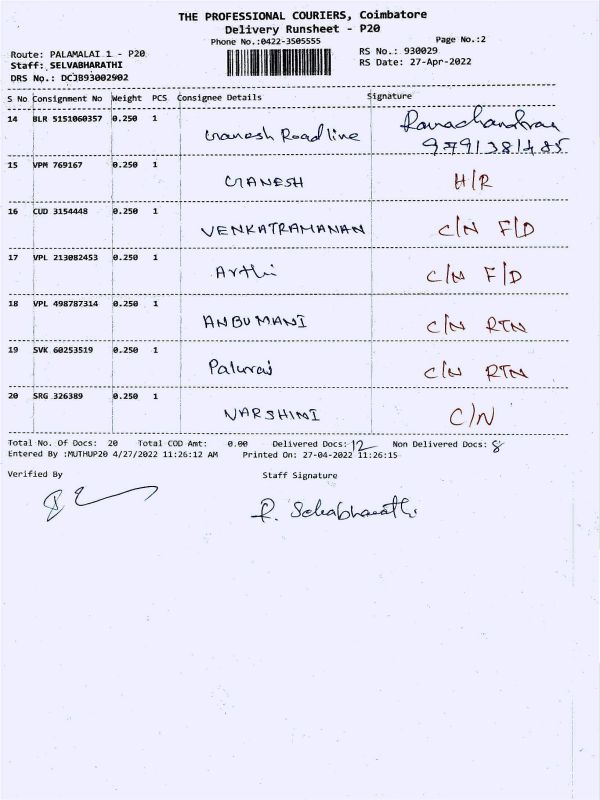 THE PROFESSIONAL COURIERS, Coimbatore
Delivery Runsheet - P20
Phone No.:0422-3505555 Page No.:2
Route: PALAMALAI 1 - P20 RS No.: 930029
Staff: SELVABHARATHI RS Date: 27-Apr-2022
DRS No.: DCJB93002902
S No Consignment No Weight PCS Consignee Details Signature
14 BLR 5151060357 0.250 1 Ganesh Roadline Ramachandran
15 VPM 769167 0.250 1 GANESH H/R
16 CUD 3154448 0.250 1 VENKATRAMANAN C/N F/D
17 VPL 213082453 0.250 1 Arthi C/N F/D
18 VPL 498787314 0.250 1 ANBUMANI C/N RTN
19 SVK 60253519 0.250 1 C/N RTN
20 SRG 326389 0.250 1 VARSHINI C/N
Total No. Of Docs: 20 Total COD Amt: 0.00 Delivered Docs: 12 Non Delivered Docs: 8
Entered By :MUTHUP20 4/27/2022 11:26:12 AM Printed On: 27-04-2022 11:26:15
Verified By Staff Signature
R. Selvabharathi